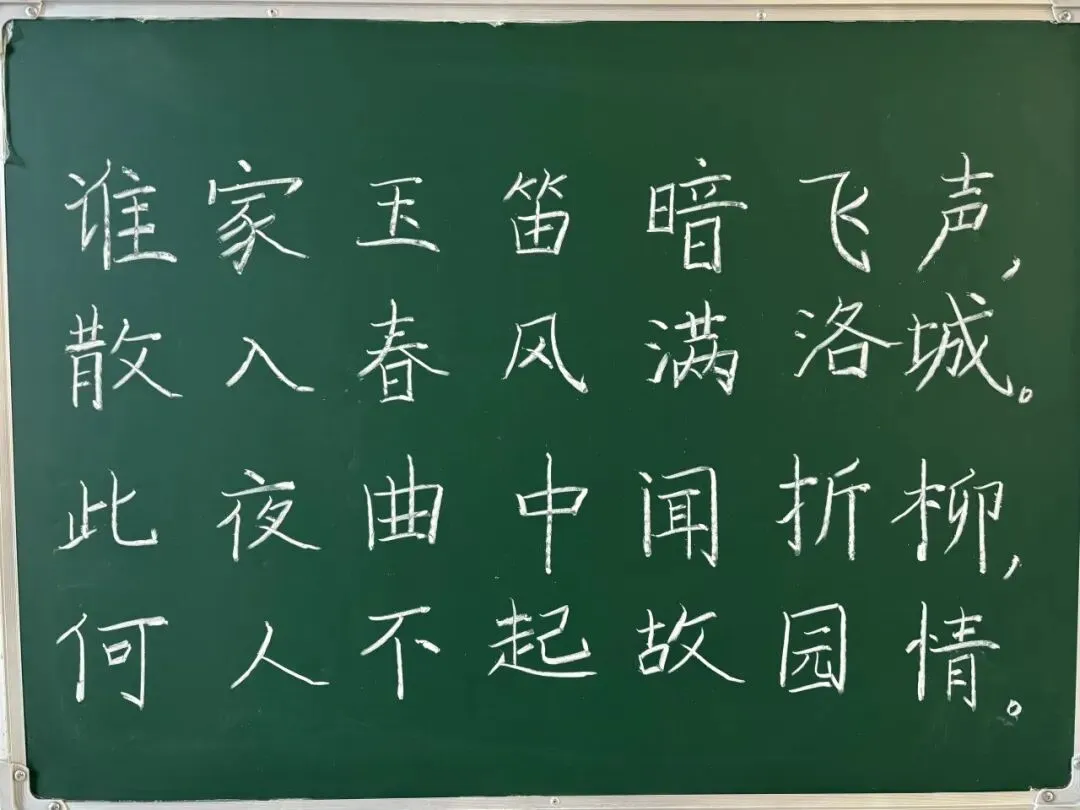 谁家玉笛暗飞声，
散入春风满洛城。
此夜曲中闻折柳，
何人不起故园情。